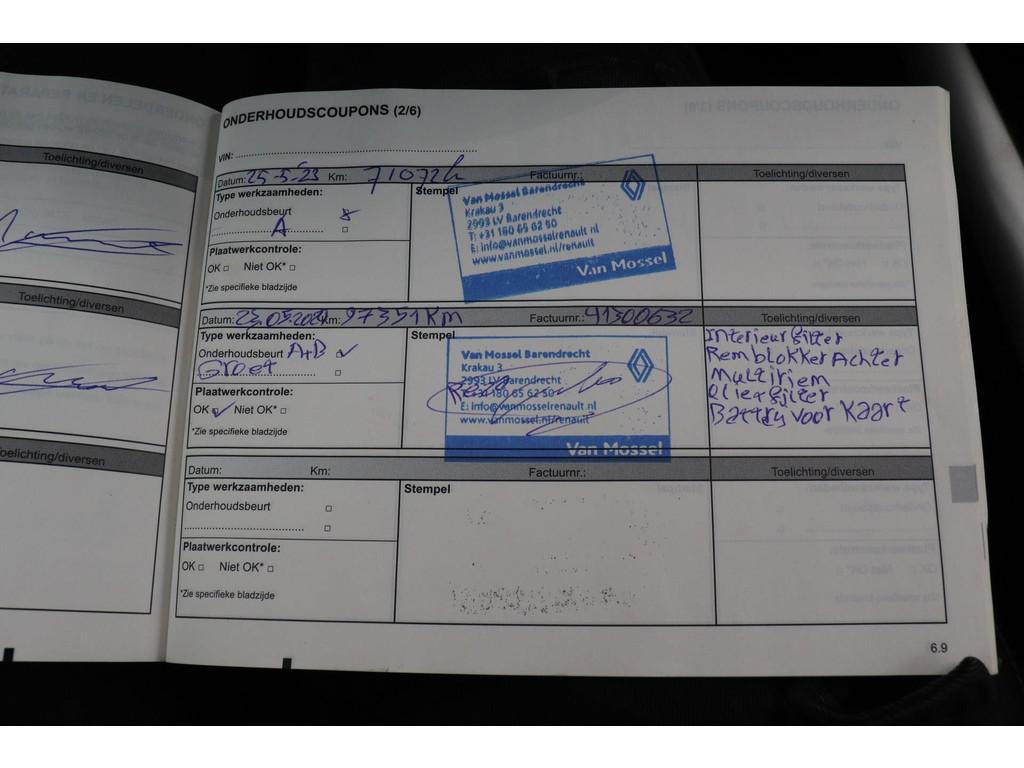 ONDERHOUDSCOUPONS (2/6)
VIN:
Toelichting/diversen
Datum: 25-5-23 Km: 71072 Factuurnr.: Toelichting/diversen
Type werkzaamheden: Stempel
Onderhoudsbeurt
A
Plaatwerkcontrole:
OK Niet OK*
*Zie specifieke bladzijde
Van Mossel Barendrecht
Krakau 3
2993 LV Barendrecht
T: +31 180 65 62 50
E: info@vanmosselrenault.nl
www.vanmossel.nl/renault
Van Mossel
Toelichting/diversen
Datum: 23.05.2024 Km: 97351 KM Factuurnr.: 41300632 Toelichting/diversen
Type werkzaamheden: Stempel
Onderhoudsbeurt A+B
Groet
Plaatwerkcontrole:
OK Niet OK*
*Zie specifieke bladzijde
Van Mossel Barendrecht
Krakau 3
2993 LV Barendrecht
+31 180 65 62 50
E: info@vanmosselrenault.nl
www.vanmossel.nl/renault
Van Mossel
Interieur filter
Remblokker Achter
Multiriem
Olie filter
Battery voor Kaart
Toelichting/diversen
Datum: Km: Factuurnr.: Toelichting/diversen
Type werkzaamheden: Stempel
Onderhoudsbeurt
Plaatwerkcontrole:
OK Niet OK*
*Zie specifieke bladzijde
6.9